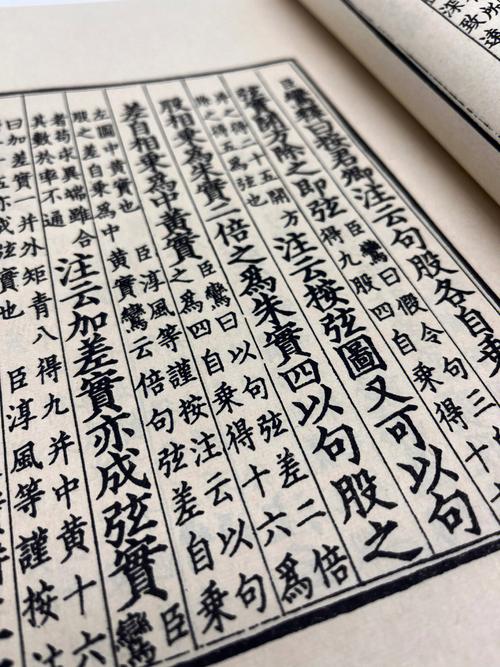 臣鸞釋曰按君卿注云句股各自乘
弦實開方除之即弦
臣鸞曰假令句三
得九股四自乘得十
并之得二十五開方
除之得五爲弦也
注云按弦圖又可以句
股相乘爲朱實二倍之爲朱實四以句股之
差自相乘爲中黃實
臣鸞曰以句弦差二倍
之爲四自乘得十六爲
左圖中黃實也
臣淳風等謹按注云以句
股之差自乘爲中
黃實鸞云倍句弦差自乘
者茍求異端雖合
其數於率不通
注云加差實亦成弦實
臣鸞
曰加差實一并外矩青八得九并中黃十六
十五亦成弦實也
臣淳風等謹按